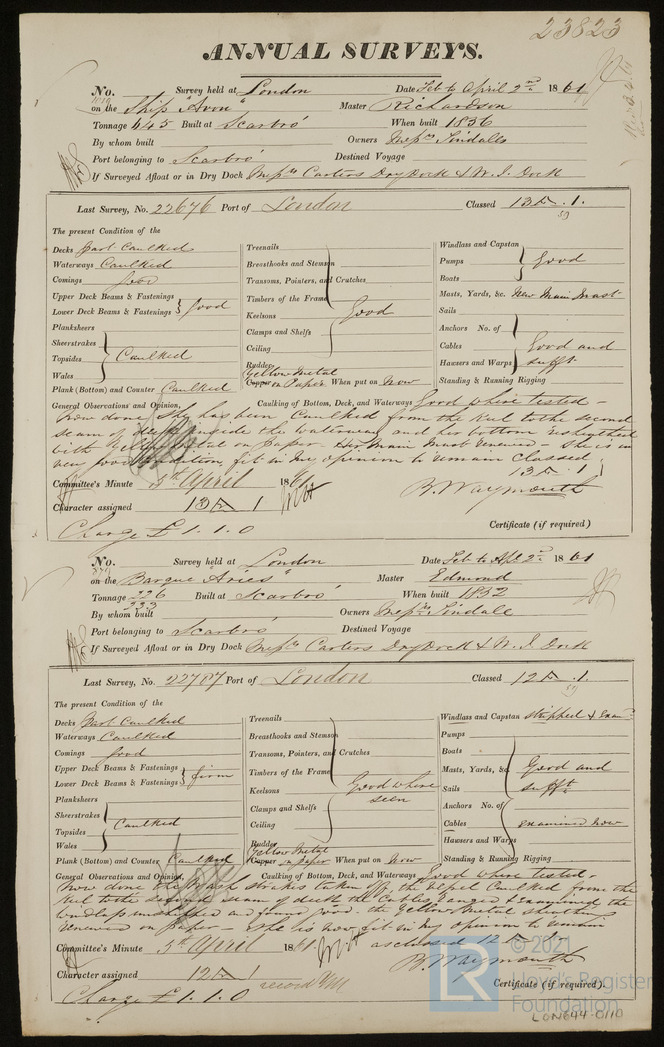 23823
ANNUAL SURVEYS.
No. Survey held at London Date Feb to April 2nd. 1861
on the Ship "Avon" Master Richardson
Tonnage 645 Built at Scarbro' When built 1836
By whom built Owners Messrs Tindalls
Port belonging to Scarbro' Destined Voyage
If Surveyed Afloat or in Dry Dock Messrs Carters Dry Dock & W. I. Dock
Last Survey, No. 22676 Port of London Classed 13 .1.
59
The present Condition of the
Decks Part Caulked
Waterways Caulked
Comings good
Upper Deck Beams & Fastenings
Lower Deck Beams & Fastenings } good
Planksheers
Sheerstrakes
Topsides } Caulked
Wales
Plank (Bottom) and Counter Caulked
Treenails
Breasthooks and Stemson
Transoms, Pointers, and Crutches
Timbers of the Frame
Keelsons Good
Clamps and Shelfs
Ceiling
Rudder
Yellow Metal
Copper on Paper. When put on Now
Windlass and Capstan
Pumps } Good
Boats
Masts, Yards, &c. New Main Mast
Sails
Anchors No. of
Cables } Good and
Hawsers and Warps sufft.
Standing & Running Rigging
General Observations and Opinion, Caulking of Bottom, Deck, and Waterways Good where tested -
Now done Ship has been Caulked from the Keel to the second
seam of deck inside the waterway and her bottom
with Yellow Metal on paper. Her Main Mast renewed - She is in
very good condition, fit in my opinion to remain Classed
13 1
Committee's Minute 5th April 1861
B. Waymouth
Character assigned 13 1
Charge £1.1.0
Certificate (if required)
No. Survey held at London Date Feb to Apl 2d. 1861
on the Barque "Aries" Master Edmond
Tonnage 226 Built at Scarbro' When built 1832
233
By whom built Owners Messrs Tindale
Port belonging to Scarbro' Destined Voyage
If Surveyed Afloat or in Dry Dock Messrs Carters Dry Dock & W. I. Dock
Last Survey, No. 22787 Port of London Classed 12 .1.
59
The present Condition of the
Decks Part Caulked
Waterways Caulked
Comings Good
Upper Deck Beams & Fastenings
Lower Deck Beams & Fastenings } firm
Planksheers
Sheerstrakes
Topsides } Caulked
Wales
Plank (Bottom) and Counter Caulked
Treenails
Breasthooks and Stemson
Transoms, Pointers, and Crutches
Timbers of the Frame
Keelsons Good where
seen
Clamps and Shelfs
Ceiling
Rudder
Yellow Metal
Copper on paper When put on Now
Windlass and Capstan stripped & Exam.
Pumps
Boats
Masts, Yards, &c. Good and
Sails sufft.
Anchors No. of
Cables examined now
Hawsers and Warps
Standing & Running Rigging
General Observations and Opinion, Caulking of Bottom, Deck, and Waterways Good where tested.
Now done the Wash strakes taken off, the Vessel Caulked from the
Keel to the second seam of deck the Cables ranged & Examined the
windlass unshipped and found good. the Yellow Metal sheathing
renewed on paper - She is now fit in my opinion to remain
as classed 12
Committee's Minute 5th April 1861
B. Waymouth
Character assigned 12 1
Charge £1.1.0
record YM
Certificate (if required).
LR
© 2021
Lloyd's Register
Foundation
LON644-0110